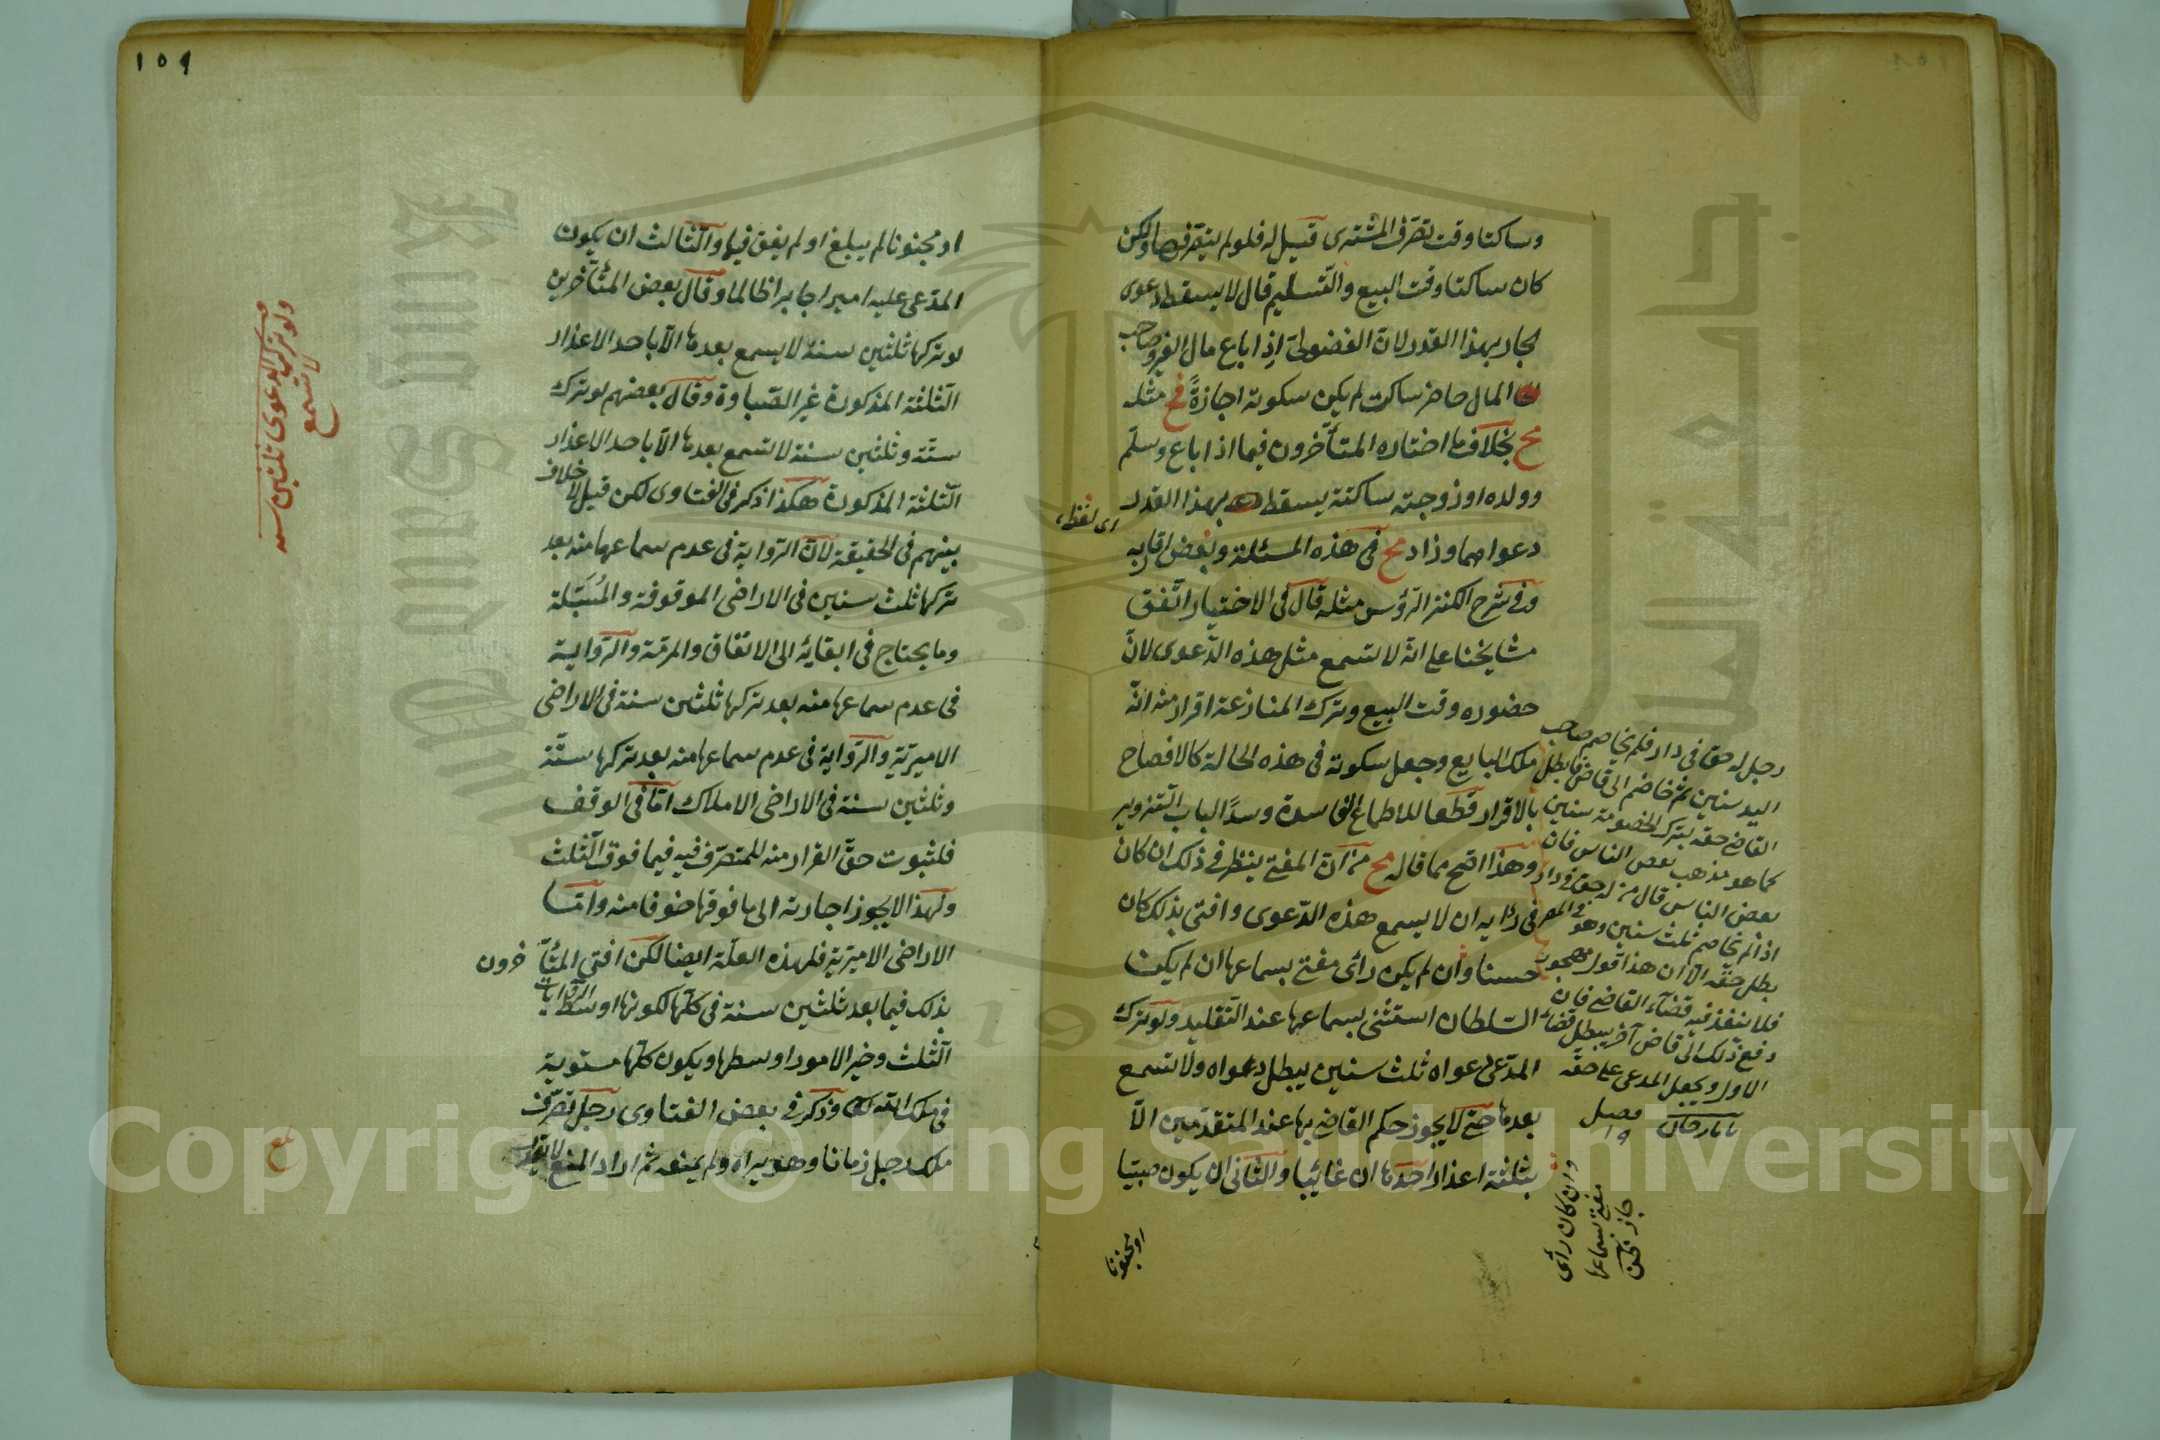 وساكتا وقت تصرّف المشترى قيل له فلو لم يتصرف ولكن
كان ساكتا وقت البيع والتّسليم قال لا يسقط دعوى
الجار بهذا القدر لانّ الفضولىّ اذا باع مال الغير وصاحب
المال حاضر ساكت لم يكن سكوته اجازةً فخ مثله
مح بخلاف ما اختاره المتأخّرون فيما اذا باع وسلّم
وولده او زوجته ساكتة يسقط بهذا القدر
دعواهما وزاد مح فى هذه المسئلة وبعض اقاربه
اى لفظ
وفى شرح الكنز الرّؤس مثله قال فى الاختيار اتّفق
مشايخنا على انّه لا تسمع مثل هذه الدّعوى لانّ
حضوره وقت البيع وترك المنازعة اقرار منه انّه
ملك البايع وجعل سكوته فى هذه الحالة كالافصاح
بالاقرار قطعا للاطماع الفاسدة وسدّا لباب التّزوير
وهذا اصحّ مما قاله مح من انّ المفتى ينظر فى ذلك ان كان
فى رايه ان لا يسمع هذه الدّعوى وافتى بذلك كان
حسنا وان لم يكن رأى مفتى بسماعها ان لم يكن
السّلطان استثنى بسماعها عند التّقليد ولو ترك
المدّعى دعواه ثلث سنين يبطل دعواه ولا تسمع
بعدها حتى لا يجوز حكم القاضى بها عند المتقدّمين الّا
بثلثة اعذار احدها ان غائبا والثّانى ان يكون صبيّا
او مجنونا
رجل له حق فى دار فلم يخاصم صاحب
اليد سنين ثم خاصم الى قاض فابطل
القاضى حقه بترك الخصومة سنين
كما هو مذهب بعض الناس فان
بعض الناس قال من له حق فى دار
اذا لم يخاصم ثلث سنين وهو فى المصر
بطل حقّه الّا ان هذا قول مهجور
فلا ينفذ فيه قضآء القاضى فان
دفع ذلك الى قاض آخر يبطل قضآء
الاول ويجعل المدعى على حقّه
تاتارخان فصل
١٩
وان كان رأى
مفتى بسماعها
جاز
١٥٩
او مجنونا لم يبلغ او لم يفق فيها والثّالث ان يكون
المدّعى عليه اميرا جابرا ظالما وقال بعض المتأخّرين
لو تركها ثلثين سنة لا يسمع بعدها الّا باحد الاعذار
الثّلثة المذكورة غير الصّباوة وقال بعضهم لو ترك
ستّة وثلثين سنة لا تسمع بعدها الّا باحد الاعذار
الثّلثة المذكورة هكذا ذكر فى الفتاوى لكن قيل لا خلاف
بينهم فى الحقيقة لانّ الرّواية فى عدم سماعها منه بعد
تركها ثلث سنين فى الاراضى الموقوفة والمُسَبّلة
وما يحتاج فى ابقائه الى الانفاق والمرمّة والرّواية
فى عدم سماعها منه بعد تركها ثلثين سنة فى الاراضى
الاميريّة والرّواية فى عدم سماعها منه بعد تركها ستّة
وثلثين سنة فى الاراضى الاملاك امّا فى الوقف
فلثبوت حقّ القرار منه للمتصرّف فيه فيما فوق الثّلث
ولهذا لا يجوز اجارته الى ما فوقها خوفا منه وامّا
الاراضى الاميريّة فلهذه العلّة ايضا لكن افتى المتأخّرون
بذلك فيما بعد ثلثين سنة فى كلّها لكونها اوسط الرّوايات
الثّلث وخير الامور اوسطها ويكون كلّها مستوية
فى ملك وذكر فى بعض الفتاوى رجل تصرّف
ملك رجل زمانا وهو يراه ولم يمنعه ثم اراد المنع
ولو ترك الدعوى ثلثين سنة
لا تسمع
Copyright © King Saud University
جامعة الملك سعود
King Saud University
1957